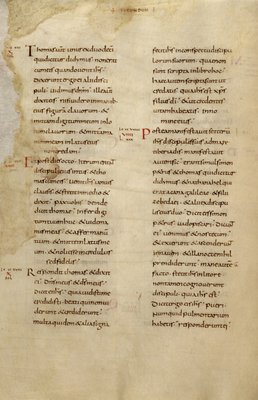 SECUNDUM
Thomas aut unus ex duodeci
qui dicitur didimus non erat
cum eis quando uenit ihs
Dixerunt ergo ei alii disci
puli uidimus dnm ille au
dixit eis nisi uidero in mani
eius figuram clauorum &
mittam digitum meum in lo
cum clauorum & mittam
manum meam in latus eius
non credam
Et post dies octo iterum erant
discipuli eius intus & tho
mas cum eis uenit ihs ianuis
clausis & stetit in medio &
dixit pax uobis Deinde
dicit thomae Infer digitu
tuum huc & uide ma
nus meas & affer manu
tuam & mitte in latus meu
& noli esse incredulus
sed fidelis
Respondit thomas & dixit
ei Dns meus & ds meus
Dicit ei ihs quia uidisti me
credidisti beati qui non ui
derunt & crediderunt
multa quidem & alia signa
fecit ihs in conspectu discipu
lorum suorum quae non
sunt scripta in libro hoc
haec autem scripta sunt ut
credatis quia ihs est xps
filius di & ut credentes
uitam habeatis in no
mine eius
Postea manifestauit se iteru
ihs discipulis suis ad ma
re tiberiadis manifestauit
autem sic erant simul simon
petrus & thomas qui dicitur
didimus & nathanahel qui
erat a cana galileae & filii
zebedaei & alii ex discipu
lis eius duo Dicit eis simon
petrus uado piscari Dicunt
ei uenimus & nos tecum
& exierunt & ascenderunt
in nauem & illa nocte nihil
prendiderunt mane aute
facto stetit ihs in litore
non tamen cognouerunt
discipuli quia ihs est
Dicit ergo eis ihs pueri
numquid pulmentarium
habetis responderunt ei